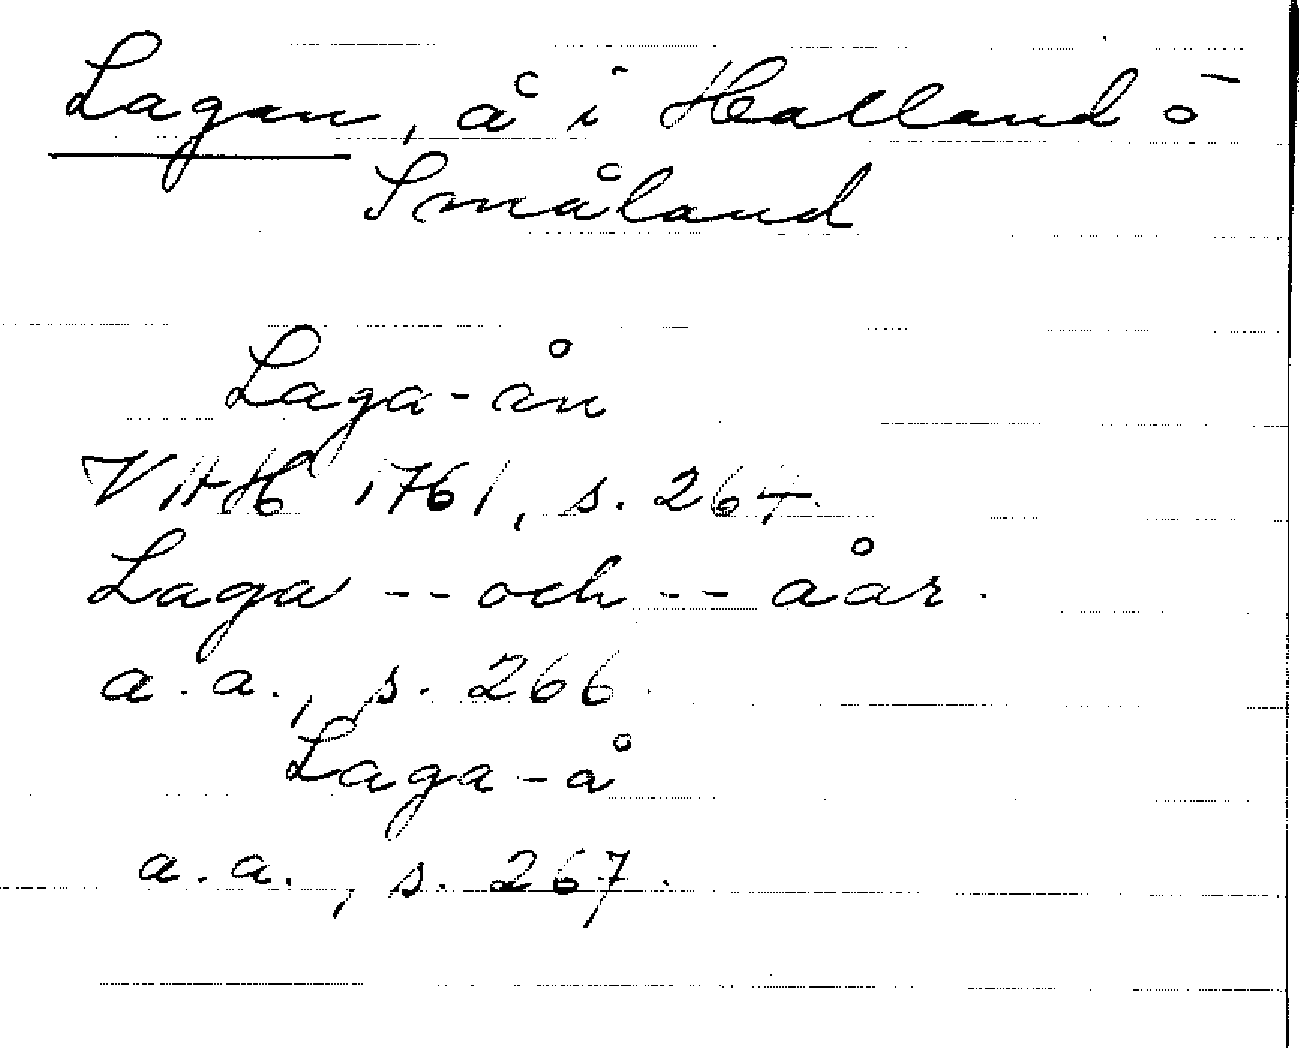 Lagan, å i Halland o
Småland
Laga-ån
VAH 1761, s. 264.
Laga -- och -- åar.
a.a., s. 266.
Laga-å
a.a., s. 267.